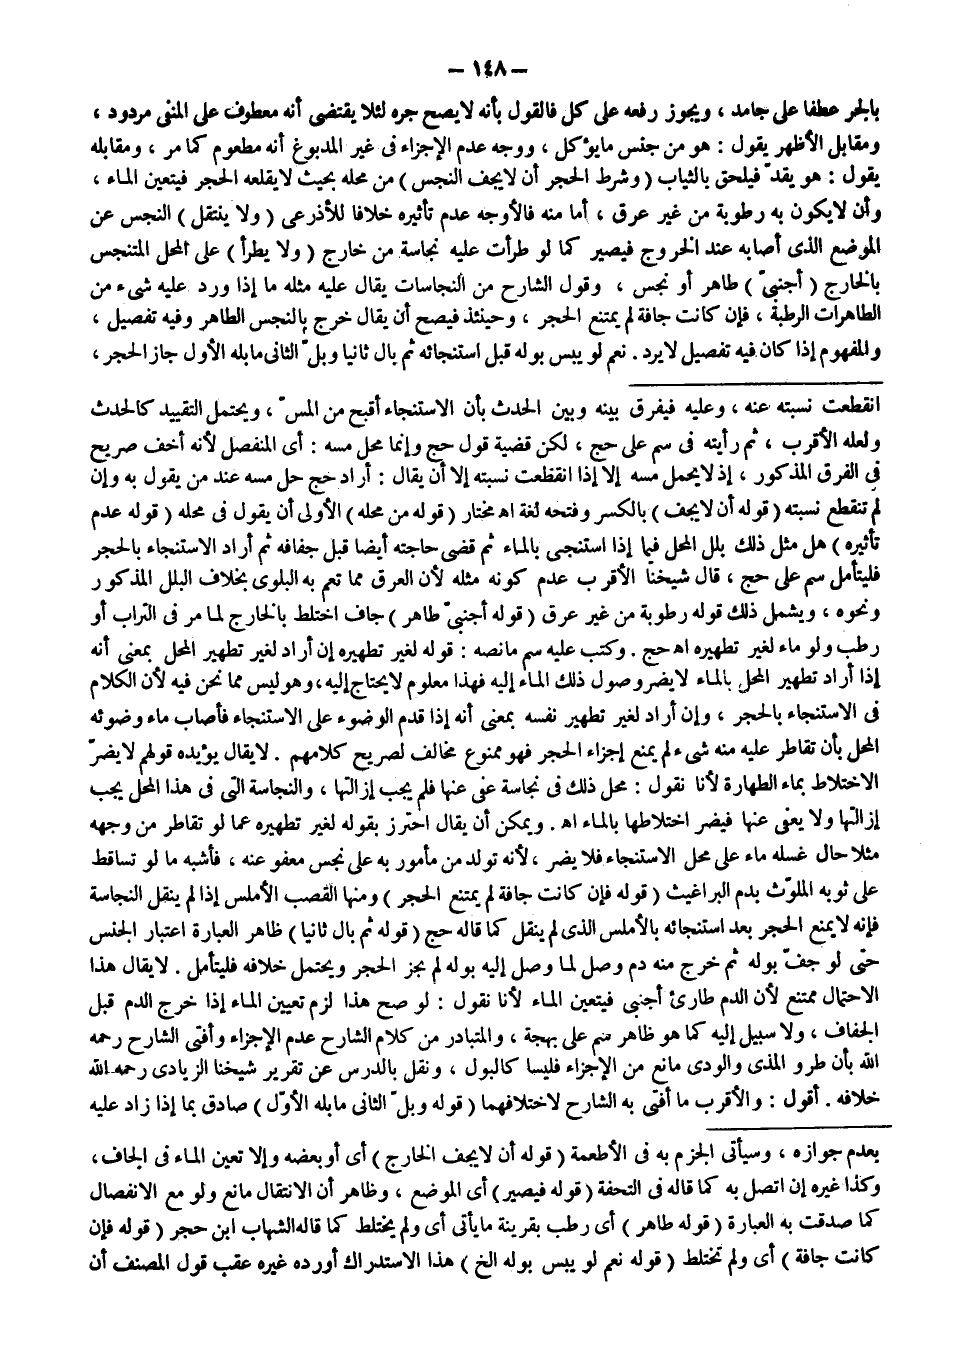 — ١٤٨ —
بالجر عطفا على جامد ، ويجوز رفعه على كل فالقول بأنه لايصح جره لئلا يقتضى أنه معطوف على المنفى مردود ،
ومقابل الأظهر يقول : هو من جنس مايؤكل ، ووجه عدم الإجزاء فى غير المدبوغ أنه مطعوم كما مر ، ومقابله
يقول : هو يقدّ فيلحق بالثياب ( وشرط الحجر أن لايجف النجس ) من محله بحيث لايقلعه الحجر فيتعين الماء ،
وأن لايكون به رطوبة من غير عرق ، أما منه فالأوجه عدم تأثيره خلافا للأذرعى ( ولا ينتقل ) النجس عن
الموضع الذى أصابه عند الخروج فيصير كما لو طرأت عليه نجاسة من خارج ( ولا يطرأ ) على المحل المتنجس
بالخارج ( أجنبىّ ) طاهر أو نجس ، وقول الشارح من النجاسات يقال عليه مثله ما إذا ورد عليه شىء من
الطاهرات الرطبة ، فإن كانت جافة لم يمتنع الحجر ، وحينئذ فيصح أن يقال خرج بالنجس الطاهر وفيه تفصيل ،
والمفهوم إذا كان فيه تفصيل لايرد . نعم لو يبس بوله قبل استنجائه ثم بال ثانيا وبلّ الثانى مابله الأول جاز الحجر ،
انقطعت نسبته عنه ، وعليه فيفرق بينه وبين الحدث بأن الاستنجاء أقبح من المسّ ، ويحتمل التقييد كالحدث
ولعله الأقرب ، ثم رأيته فى سم على حج ، لكن قضية قول حج وإنما محل مسه : أى المنفصل لأنه أخف صريح
فى الفرق المذكور ، إذ لايحمل مسه إلا إذا انقطعت نسبته إلا أن يقال : أراد حج حل مسه عند من يقول به وإن
لم تنقطع نسبته ( قوله أن لايجف ) بالكسر وفتحه لغة اه مختار ( قوله من محله ) الأولى أن يقول فى محله ( قوله عدم
تأثيره ) هل مثل ذلك بلل المحل فيما إذا استنجى بالماء ثم قضى حاجته أيضا قبل جفافه ثم أراد الاستنجاء بالحجر
فليتأمل سم على حج ، قال شيخنا الأقرب عدم كونه مثله لأن العرق مما تعم به البلوى بخلاف البلل المذكور
ونحوه ، ويشمل ذلك قوله رطوبة من غير عرق ( قوله أجنبىّ طاهر ) جاف اختلط بالخارج لما مر فى التراب أو
رطب ولو ماء لغير تطهيره اه حج . وكتب عليه سم مانصه : قوله لغير تطهيره إن أراد لغير تطهير المحل بمعنى أنه
إذا أراد تطهير المحل بالماء لايضر وصول ذلك الماء إليه فهذا معلوم لايحتاج إليه ، وهو ليس مما نحن فيه لأن الكلام
فى الاستنجاء بالحجر ، وإن أراد لغير تطهير نفسه بمعنى أنه إذا قدم الوضوء على الاستنجاء فأصاب ماء وضوئه
المحل بأن تقاطر عليه منه شىء لم يمنع إجزاء الحجر فهو ممنوع مخالف لصريح كلامهم . لايقال يؤيده قولهم لايضرّ
الاختلاط بماء الطهارة لأنا نقول : محل ذلك فى نجاسة عفى عنها فلم يجب إزالتها ، والنجاسة التى فى هذا المحل يجب
إزالتها ولا يعفى عنها فيضر اختلاطها بالماء اه . ويمكن أن يقال احترز بقوله لغير تطهيره عما لو تقاطر من وجهه
مثلا حال غسله ماء على محل الاستنجاء فلا يضر ، لأنه تولد من مأمور به على نجس معفو عنه ، فأشبه ما لو تساقط
على ثوبه الملوّث بدم البراغيث ( قوله فإن كانت جافة لم يمتنع الحجر ) ومنها القصب الأملس إذا لم ينقل النجاسة
فإنه لايمنع الحجر بعد استنجائه بالأملس الذى لم ينقل كما قاله حج ( قوله ثم بال ثانيا ) ظاهر العبارة اعتبار الجنس
حتى لو جفّ بوله ثم خرج منه دم وصل لما وصل إليه بوله لم يجز الحجر ويحتمل خلافه فليتأمل . لايقال هذا
الاحتمال ممتنع لأن الدم طارئ أجنبى فيتعين الماء لأنا نقول : لو صح هذا لزم تعيين الماء إذا خرج الدم قبل
الجفاف ، ولا سبيل إليه كما هو ظاهر سم على بهجة ، والمتبادر من كلام الشارح عدم الإجزاء وأفتى الشارح رحمه
الله بأن طرو المذى والودى مانع من الإجزاء فليسا كالبول ، ونقل بالدرس عن تقرير شيخنا الزيادى رحمه الله
خلافه . أقول : والأقرب ما أفتى به الشارح لاختلافهما ( قوله وبلّ الثانى مابله الأوّل ) صادق بما إذا زاد عليه
بعدم جوازه ، وسيأتى الجزم به فى الأطعمة ( قوله أن لايجف الخارج ) أى أو بعضه وإلا تعين الماء فى الجاف ،
وكذا غيره إن اتصل به كما قاله فى التحفة ( قوله فيصير ) أى الموضع ، وظاهر أن الانتقال مانع ولو مع الانفصال
كما صدقت به العبارة ( قوله طاهر ) أى رطب بقرينة مايأتى أى ولم يختلط كما قاله الشهاب ابن حجر ( قوله فإن
كانت جافة ) أى ولم تختلط ( قوله نعم لو يبس بوله الخ ) هذا الاستدراك أورده غيره عقب قول المصنف أن